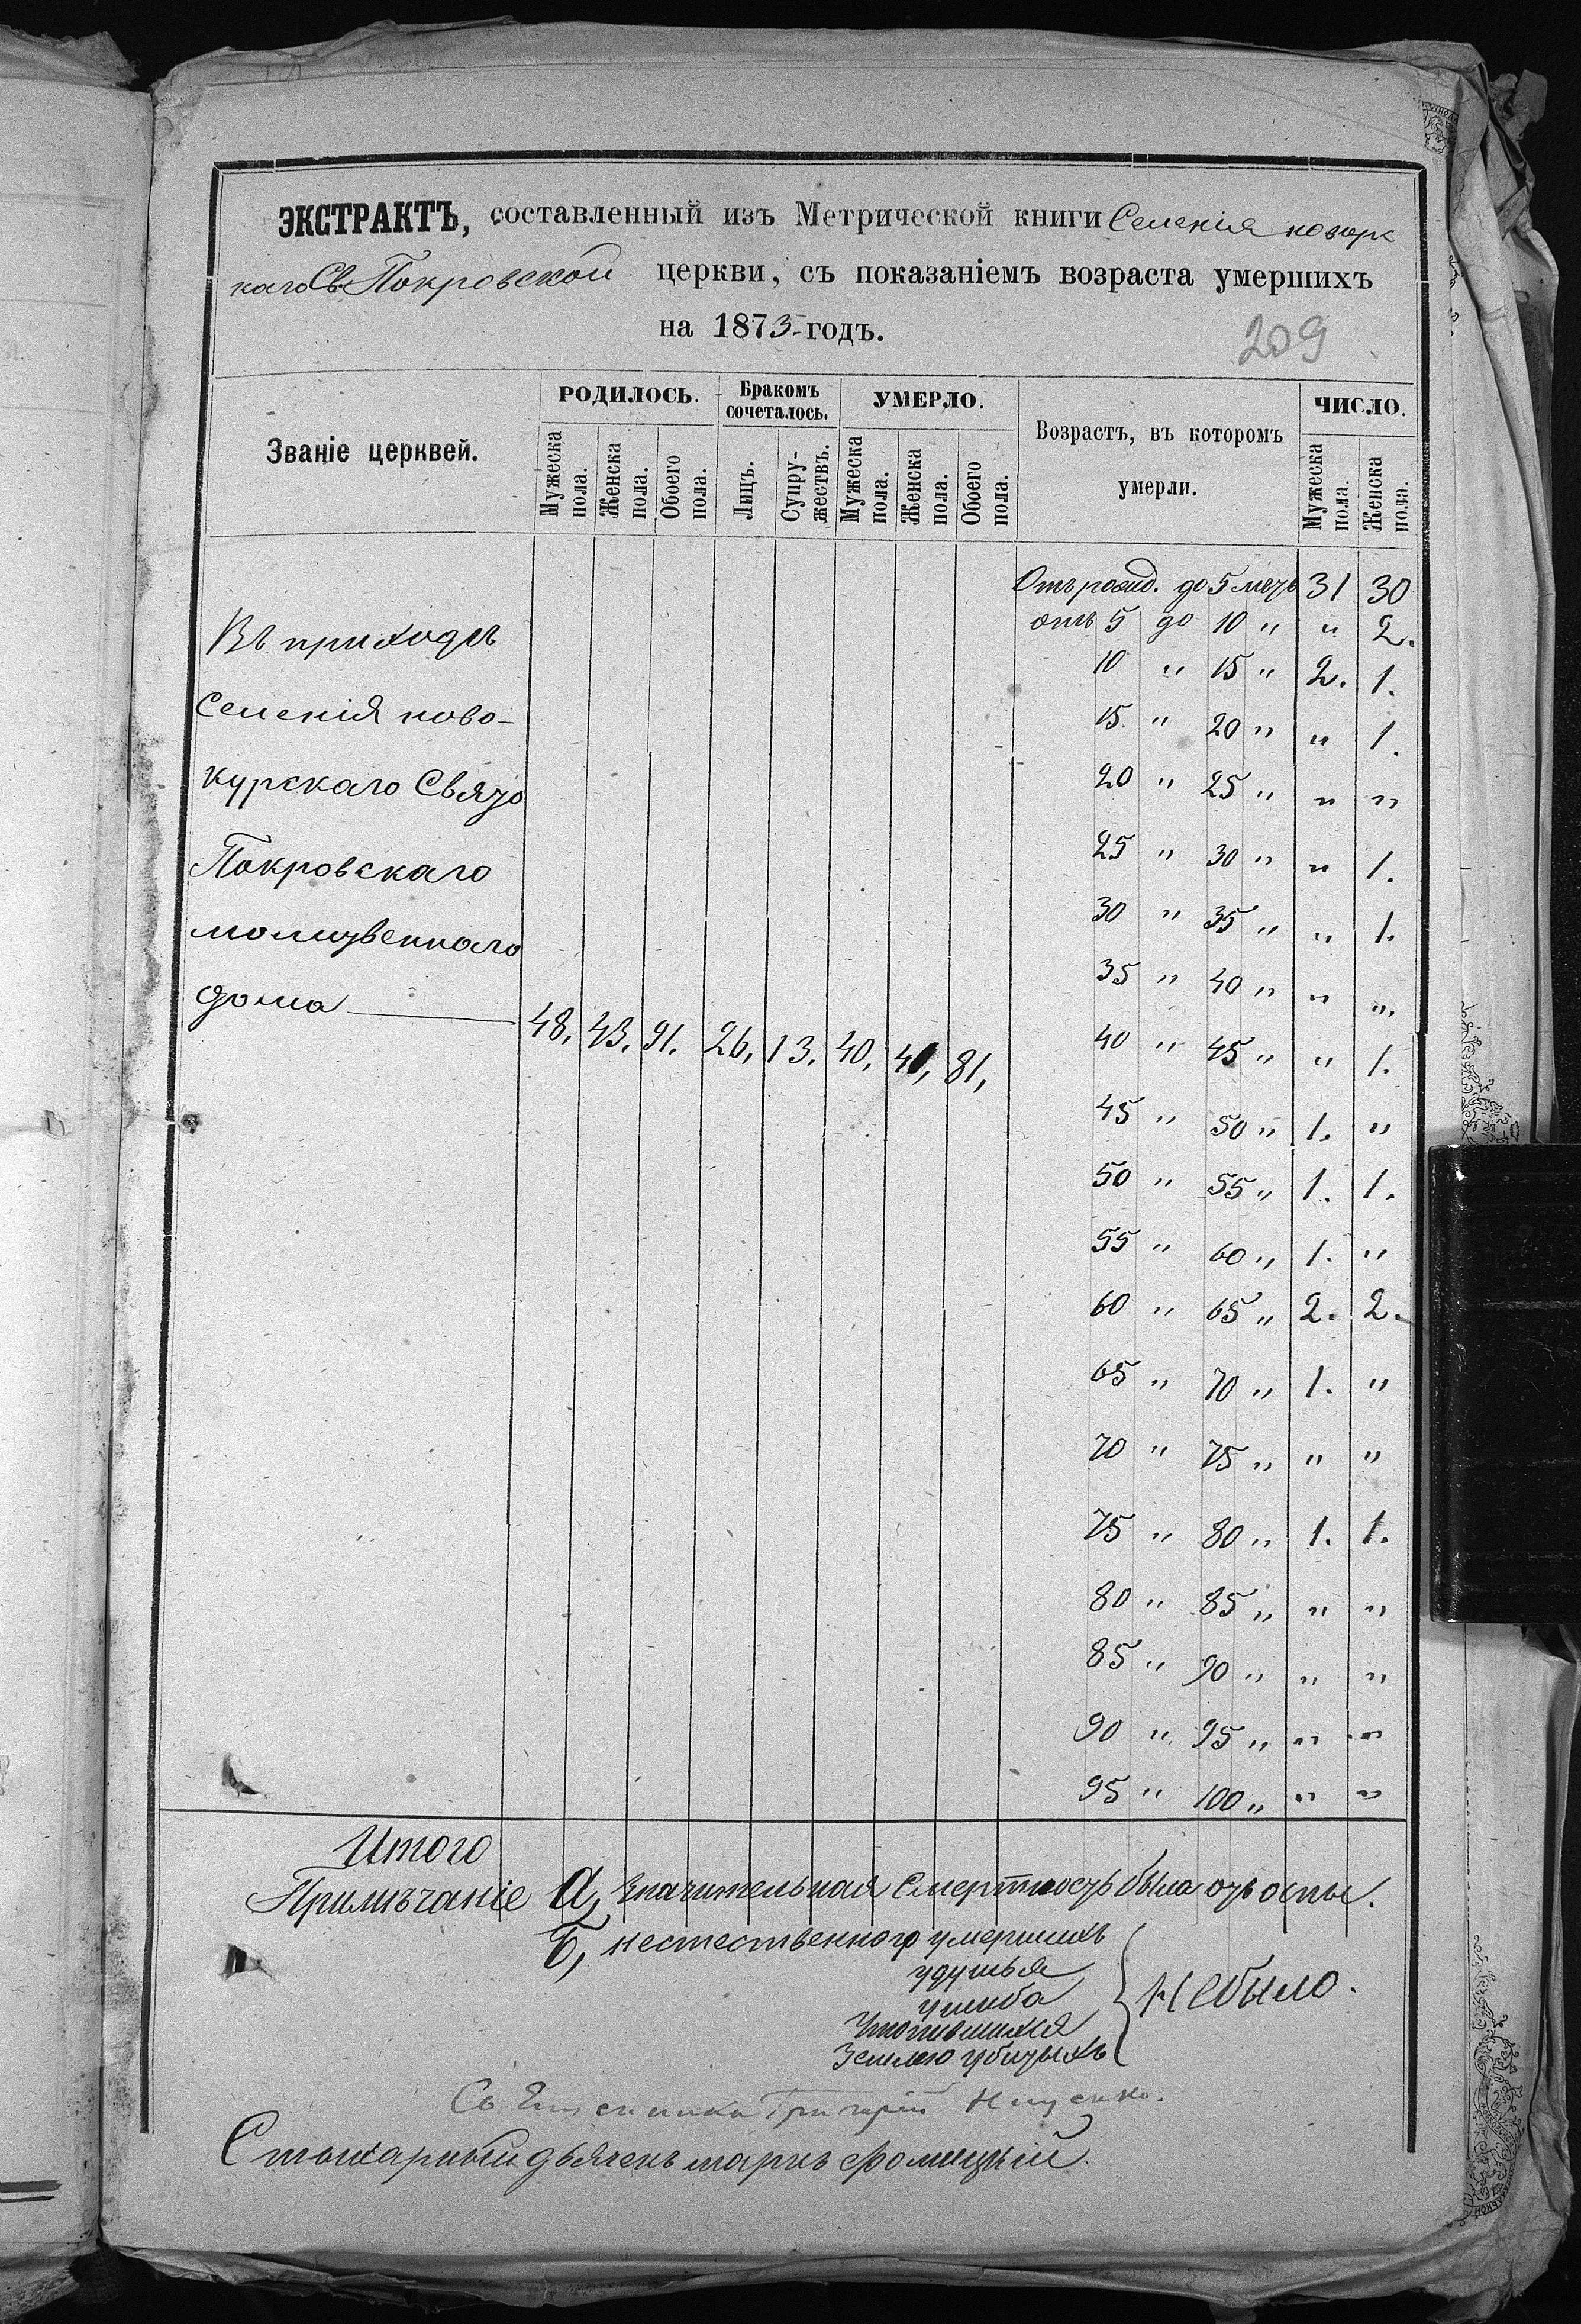 ЭКСТРАКТЪ, составленный изъ Метрической книги Селенія новорс
каго Св Покровской церкви, съ показаніемъ возраста умершихъ
на 1873 годъ.
209
Званіе церквей.
РОДИЛОСЬ.
Мужеска пола.
Женска пола.
Обоего пола.
Бракомъ сочеталось.
Лицъ.
Супружествъ.
УМЕРЛО.
Мужеска пола.
Женска пола.
Обоего пола.
Возрастъ, въ которомъ умерли.
ЧИСЛО.
Мужеска пола.
Женска пола.
Въ приходѣ
Селенія ново-
курскаго Свято
Покровскаго
молитвеннаго
дома 48, 43, 91. 26, 13. 40, 41, 81,
Отъ рожд. до 5 31 30
отъ 5 до 10 " " 2.
10 " 15 " 2. 1.
15 " 20 " " 1.
20 " 25 " " "
25 " 30 " " 1.
30 " 35 " " 1.
35 " 40 " " "
40 " 45 " " 1.
45 " 50 " 1. "
50 " 55 " 1. 1.
55 " 60 " 1. "
60 " 65 " 2. 2.
65 " 70 " 1. "
70 " 75 " " "
75 " 80 " 1. 1.
80 " 85 " " "
85 " 90 " " "
90 " 95 " " "
95 " 100 " " "
Итого
Примѣчаніе А, значительная смертность была отъ оспы.
Б, нестественного умершихъ
удушья
ушиба
Утопившихся
Землею убитыхъ
Небыло.
Священника Григорій
дьячекъ Маркъ